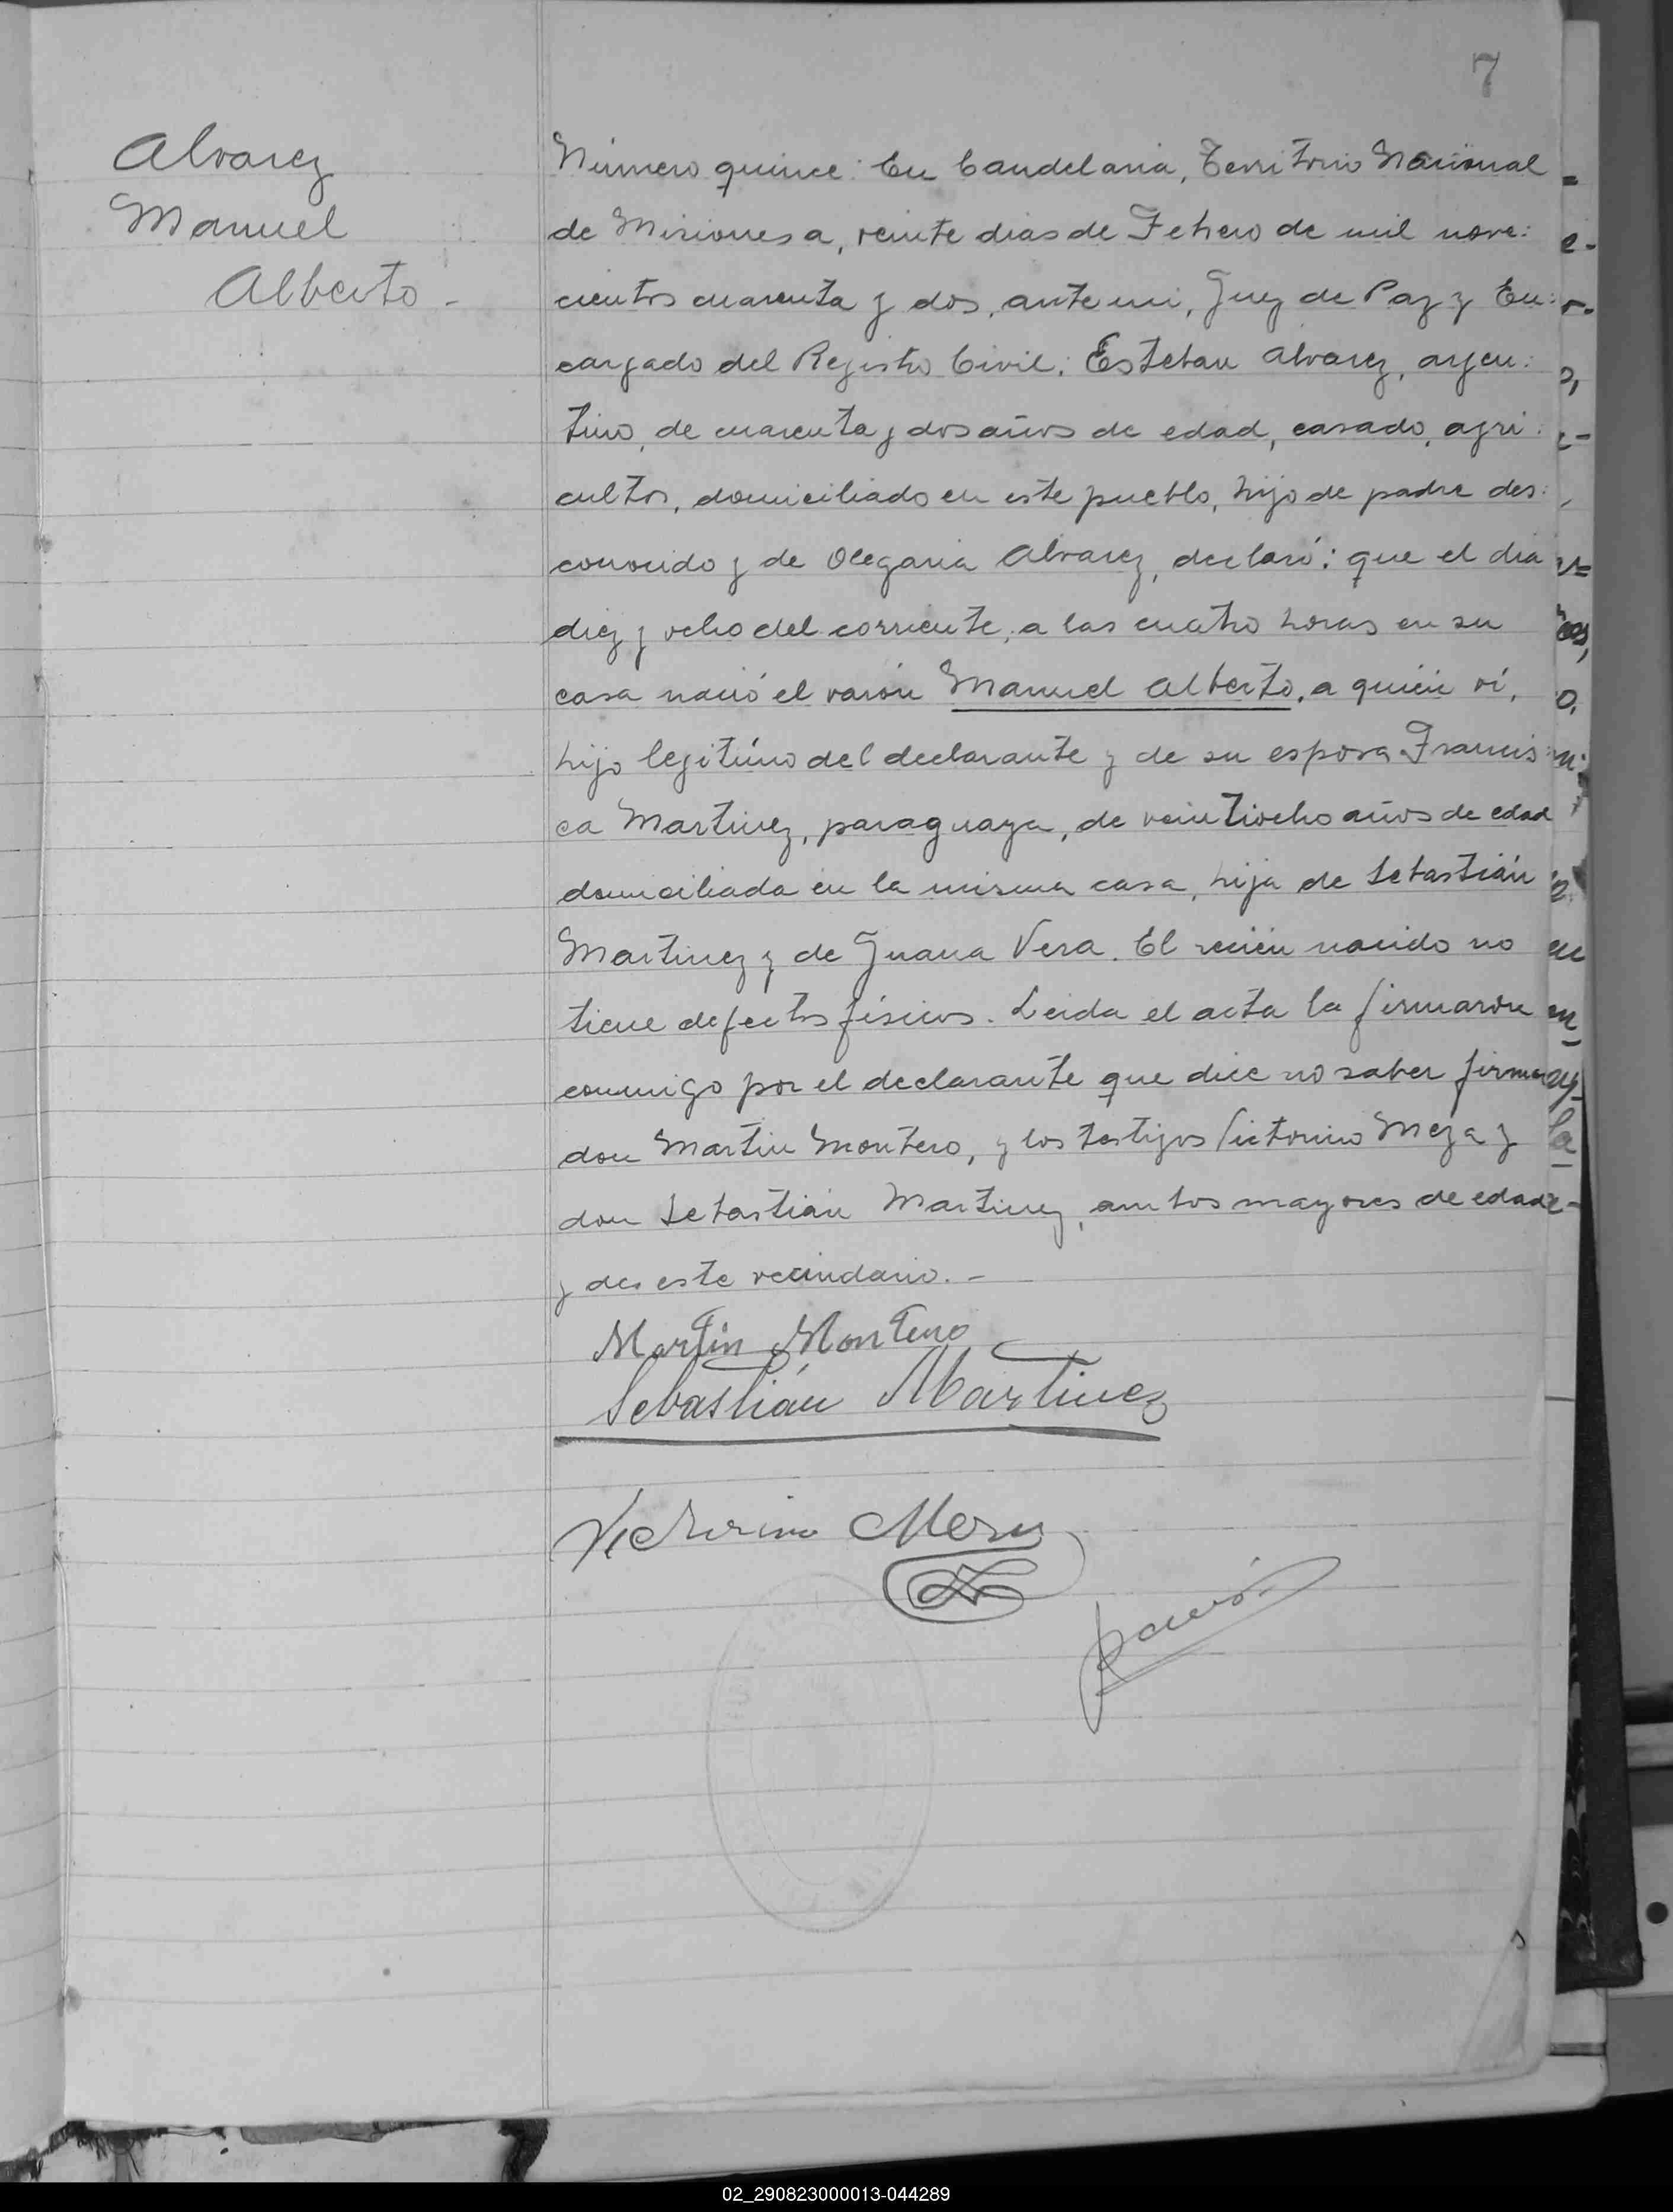 7
Alvarez
Manuel
Alberto -
Número quince: En Candelaria, Territorio Nacional
de Misiones a, veinte dias de Febrero de mil nove:
cientos cuarenta y dos, ante mi, Juez de Paz y En:
cargado del Registro Civil: Esteban Alvarez, argen:
tino, de cuarenta y dos años de edad, casado, agri:
cultor, domiciliado en este pueblo, hijo de padre des:
conocido y de Olegaria Alvarez, declaró: que el dia
diez y ocho del corriente, a las cuatro horas en su
casa nació el varón Manuel Alberto, a quién ví,
hijo legitímo del declarante y de su esposa Francis:
ca Martinez, paraguaya, de veintiocho años de edad
domiciliada en la misma casa, hija de Sebastián
Martinez y de Juana Vera. El recién nacido no
tiene defectos físicos. Leida el acta la firmaron
conmigo por el declarante que dice no saber firmar
don Martin Montero, y los testigos Victorino Meza y
don Sebastián Martinez, ambos mayores de edad
y de este vecindario. -
Martin Montero
Sebastián Martinez
Victorino Mesa
02_290823000013-044289